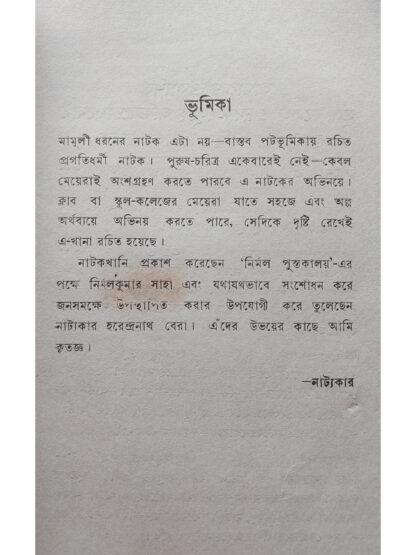 ভূমিকা
মামুলী ধরনের নাটক এটা নয়—বাস্তব পটভূমিকায় রচিত
প্রগতিধর্মী নাটক। পুরুষ-চরিত্র একেবারেই নেই—কেবল
মেয়েরাই অংশগ্রহণ করতে পারবে এ নাটকের অভিনয়ে।
ক্লাব বা স্কুল-কলেজের মেয়েরা যাতে সহজে এবং অল্প
অর্থব্যয়ে অভিনয় করতে পারে, সেদিকে দৃষ্টি রেখেই
এ-খানা রচিত হয়েছে।
নাটকখানি প্রকাশ করেছেন ‘নির্মল পুস্তকালয়’-এর
পক্ষে নির্মলকুমার সাহা এবং যথাযথভাবে সংশোধন করে
জনসমক্ষে উপস্থাপিত করার উপযোগী করে তুলেছেন
নাট্যকার হরেন্দ্রনাথ বেরা। এঁদের উভয়ের কাছে আমি
কৃতজ্ঞ।
—নাট্যকার